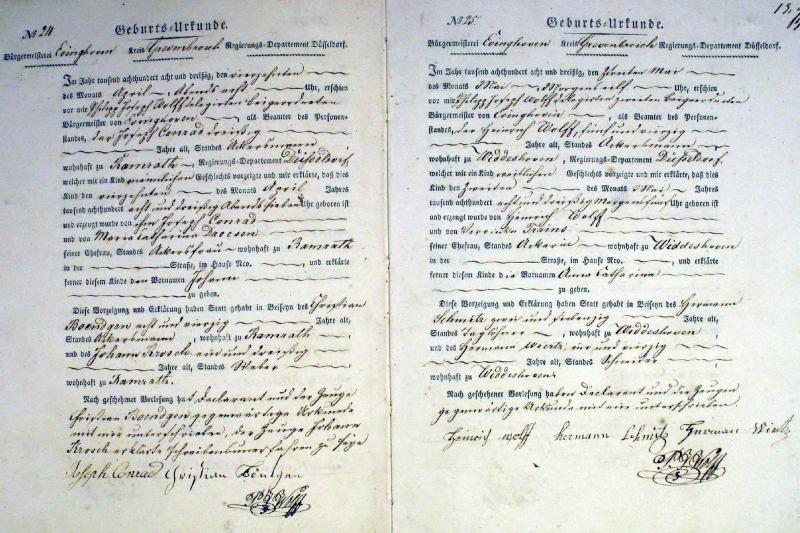 № 24
Geburts-Urkunde.
Bürgermeisterei Evinghoven Kreis Grevenbroich Regierungs-Departement Düsseldorf.
Im Jahr tausend achthundert acht und dreißig, den vierzehnten
des Monats April Abends acht Uhr, erschien
vor mir Philipp Joseph Wolff delegirten Beigeordneten
Bürgermeister von Evinghoven, als Beamter des Personen-
standes, der Joseph Conrad dreißig
Jahre alt, Standes Ackersmann
wohnhaft zu Ramrath, Regierungs-Departement Düsseldorf,
welcher mir ein Kind männlichen Geschlechts vorzeigte und mir erklärte, daß dies
Kind den vierzehnten des Monats April Jahres
tausend achthundert acht und dreißig Abends sieben Uhr geboren ist
und erzeugt wurde von ihm Joseph Conrad
und von Maria Catharina Dreesen
seiner Ehefrau, Standes Ackersfrau wohnhaft zu Ramrath
in der Straße, im Hause Nro. , und erklärte
ferner diesem Kinde den Vornamen Johann
zu geben.
Diese Vorzeigung und Erklärung haben Statt gehabt in Beiseyn des Christian
Boendgen acht und vierzig Jahre alt,
Standes Ackersmann, wohnhaft zu Ramrath
und des Johann Krosch, und dreißig
Jahre alt, Standes Weber
wohnhaft zu Ramrath.
Nach geschehener Vorlesung hat Declarant und der Zeuge
Christian Boendgen gegenwärtige Urkunde
mit mir unterschrieben, der Zeuge Johann
Krosch erklärte Schreibens unerfahren zu seyn
Joseph Conrad Christian Böntgen
PJ Wolff
№ 25
Geburts-Urkunde.
Bürgermeisterei Evinghoven Kreis Grevenbroich Regierungs-Departement Düsseldorf.
Im Jahr tausend achthundert acht und dreißig, den zweiten Mai
des Monats Mai Morgens elf Uhr, erschien
vor mir Philipp Joseph Wolff delegirten zweiten Beigeordneten
Bürgermeister von Evinghoven als Beamter des Personen-
standes, der Heinrich Wolff, fünf und vierzig
Jahre alt, Standes Ackersmann
wohnhaft zu Widdeshoven, Regierungs-Departement Düsseldorf,
welcher mir ein Kind weiblichen Geschlechts vorzeigte und mir erklärte, daß dies
Kind den zweiten des Monats Mai Jahres
tausend achthundert acht und dreißig Morgens fünf Uhr geboren ist
und erzeugt wurde von Heinrich Wolff
und von Veronika Trains
seiner Ehefrau, Standes Ackerin wohnhaft zu Widdeshoven
in der Straße, im Hause Nro. , und erklärte
ferner diesem Kinde die Vornamen Anna Catharina
zu geben.
Diese Vorzeigung und Erklärung haben Statt gehabt in Beiseyn des Hermann
Schmitz zwei und siebenzig Jahre alt,
Standes Taglöhner, wohnhaft zu Widdeshoven
und des Hermann Wiertz, und vierzig
Jahre alt, Standes Schneider
wohnhaft zu Widdeshoven.
Nach geschehener Vorlesung haben Declarant und die Zeugen
gegenwärtige Urkunde mit mir unterschrieben.
Heinrich Wolff hermann Schmitz Hermann Wiertz
PJ Wolff